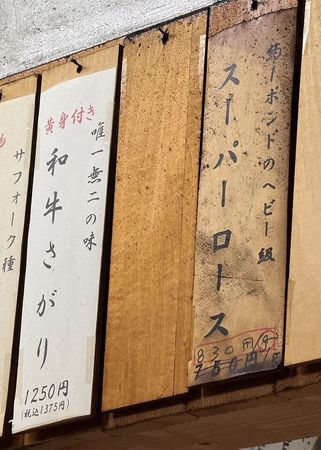 約一ポンドのヘビー級
スーパーロース
830円
750円
唯一無二の味
黄身付き
和牛さがり
1250円
(税込1375円)
サフォーク種